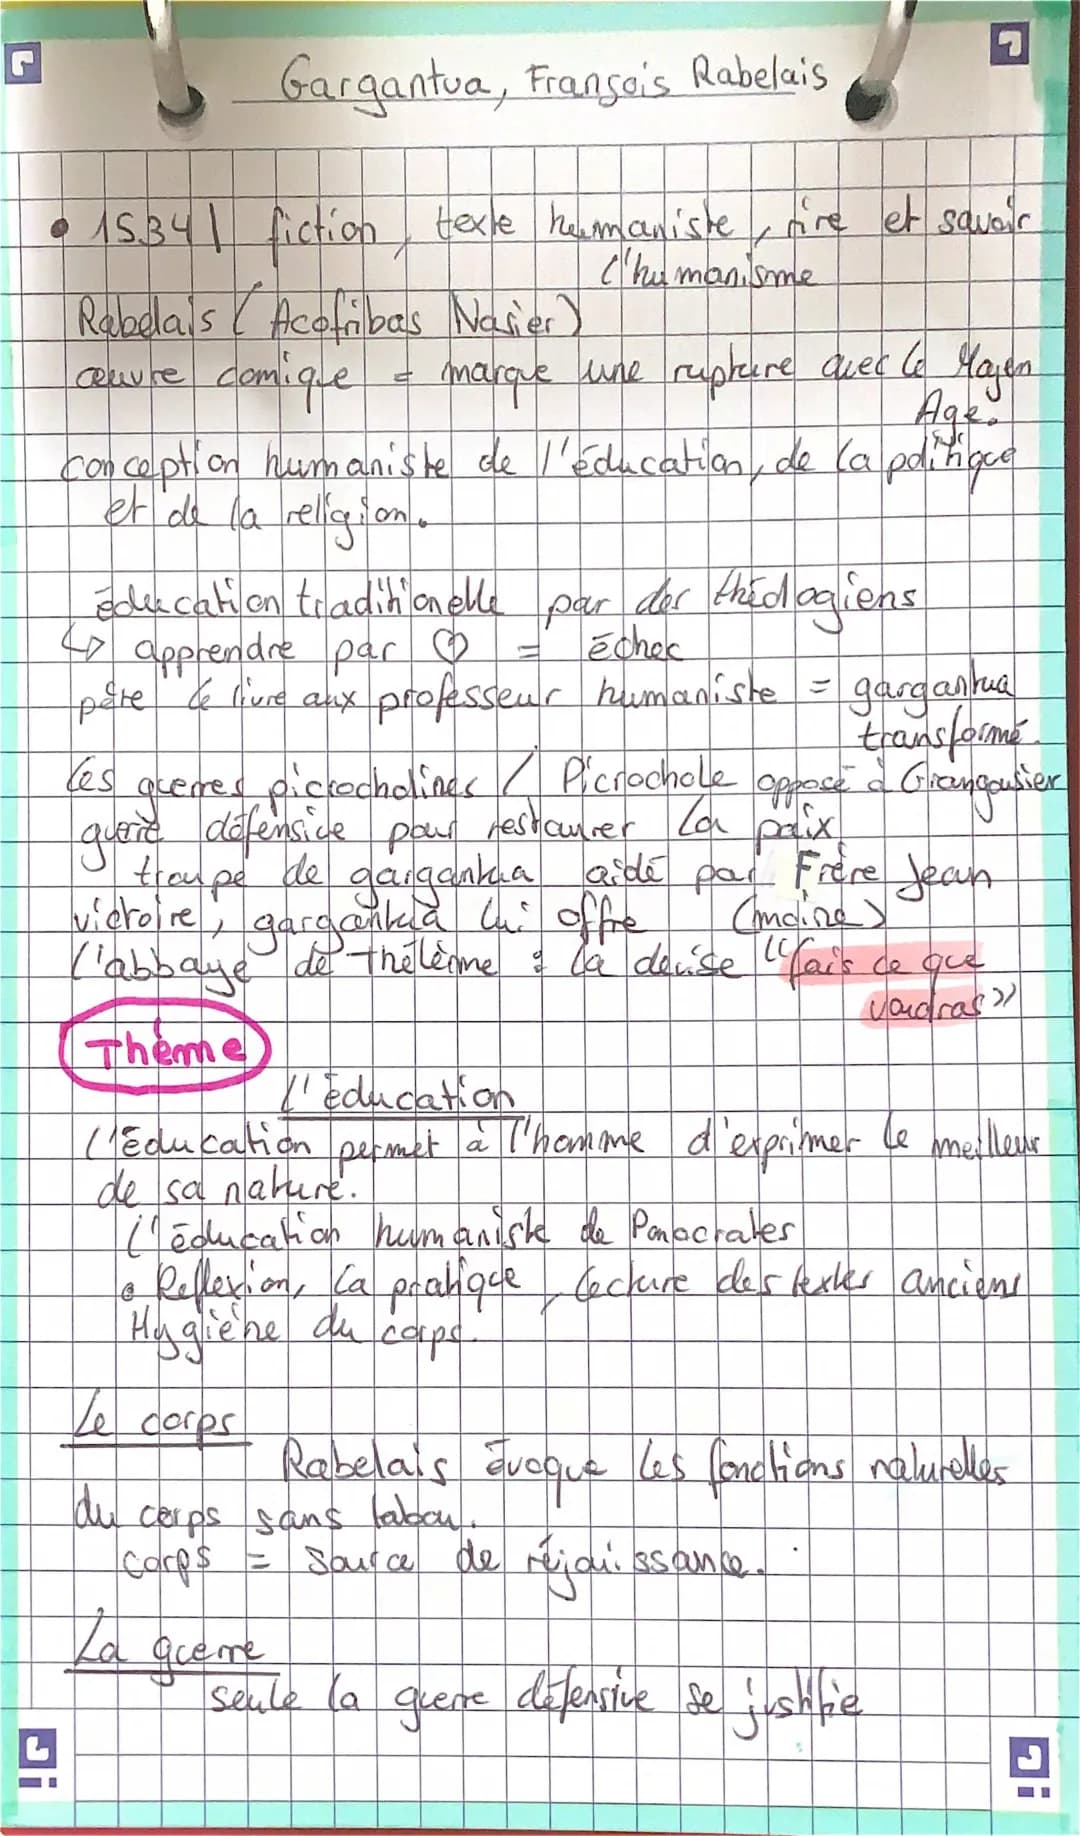 Gargantua, François Rabelais
• 1534 | fiction, texte humaniste, rire et savoir
l'humanisme
Rabelais (Acofribas Nasier)
œuvre comique = marque une rupture avec le Moyen
Age.
conception humaniste de l'éducation, de la politique
et de la religion.
éducation traditionelle par des théologiens
↳ apprendre par ♡ = échec
père le livre aux professeur humaniste = gargantua
transformé.
les guerres picrocholines / Picrochole opposé à Grangousier
guerre défensive pour restaurer la paix
troupe de gargantua aidé par Frère Jean
victoire, gargantua lui offre (moine)
l'abbaye de thélème : la devise "fais ce que
voudras"
Thème
l'éducation
l'éducation permet à l'homme d'exprimer le meilleur
de sa nature.
l'éducation humaniste de Ponocrates
• Reflexion, la pratique, lecture des textes anciens
Hygiène du corps.
Le corps
Rabelais évoque les fonctions naturelles
du corps sans tabou.
corps = source de réjouissance.
La guerre
seule la guerre défensive se justifie